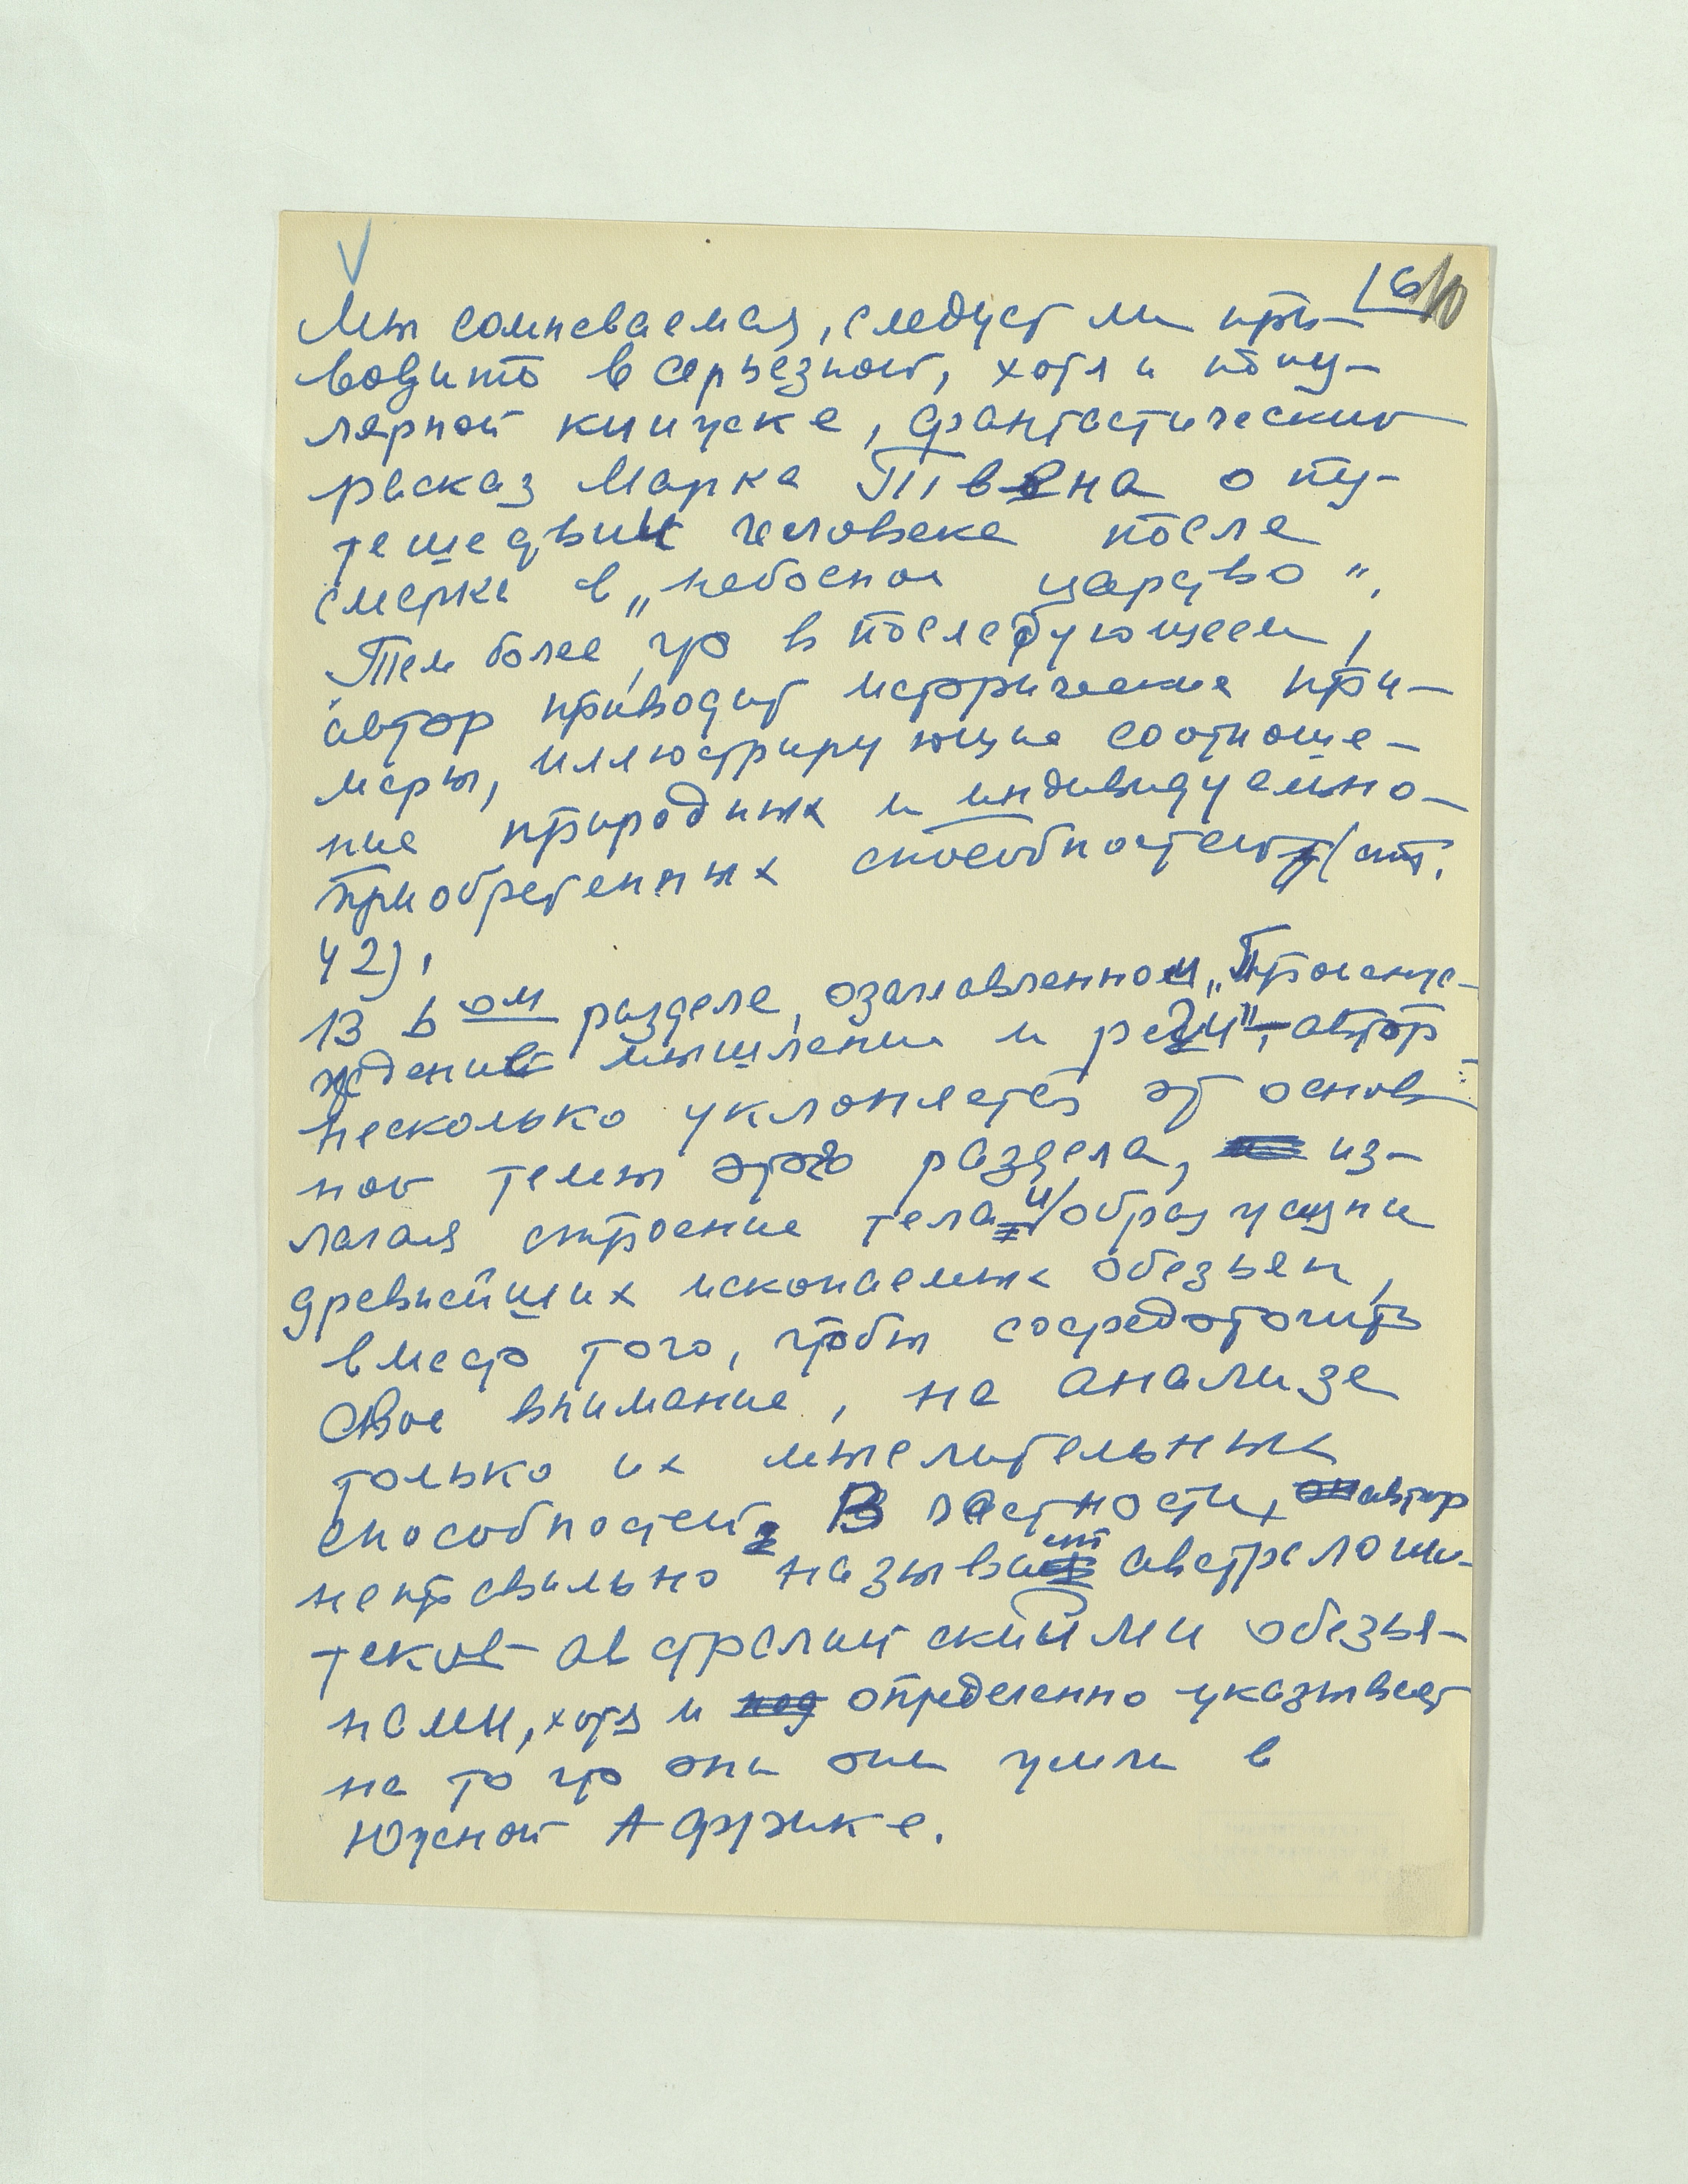 16
Мы сомневаемся, следует ли при-
водить в серьезной, хотя и попу-
лярной книжке, фантастический
расказ Марка Твена о пу-
тешедвии человека после
смерти в „небесное царство“.
Тем более, что в последующем,
автор приводит исторические при-
меры, иллюстрирующие соотноше-
ние природных и индивидуально-
приобретенных способностей (стр.
42).
В 6ом разделе, озаглавленном „Происхо-
ждение мышления и речи“, автор
несколько уклоняется от основ-
ной темы этого раздела, из-
лагая строение тела и образ жизни
древнейших ископаемых обезьян,
вместо того, чтобы сосредоточить
свое внимание, на анализе
только их мыслительных
способностей. В частности, автор
неправильно называет австралопи-
теков австралийскими обезья-
нами, хотя и определенно указывает
на то что они жили в
Южной Африке.